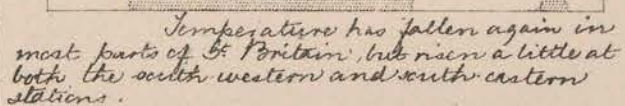 Temperature has fallen again in
most parts of Gt. Britain, but risen a little at
both the south western and south eastern
stations.